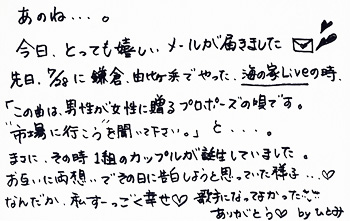 あのね・・・。
今日、とっても嬉しい、メールが届きました
先日、7/28に鎌倉、由比ヶ浜でやった、海の家Liveの時、
「この曲は、男性が女性に贈るプロポーズの唄です。
"市場に行こう"を聞いて下さい。」と・・・。
まさに、その時1組のカップルが誕生していました。
お互いに両想いでその日に告白しようと思っていた様子・・・♡
なんだか、私すーっごく幸せ♡歌手になってよかった
ありがとう♡ by ひとみ